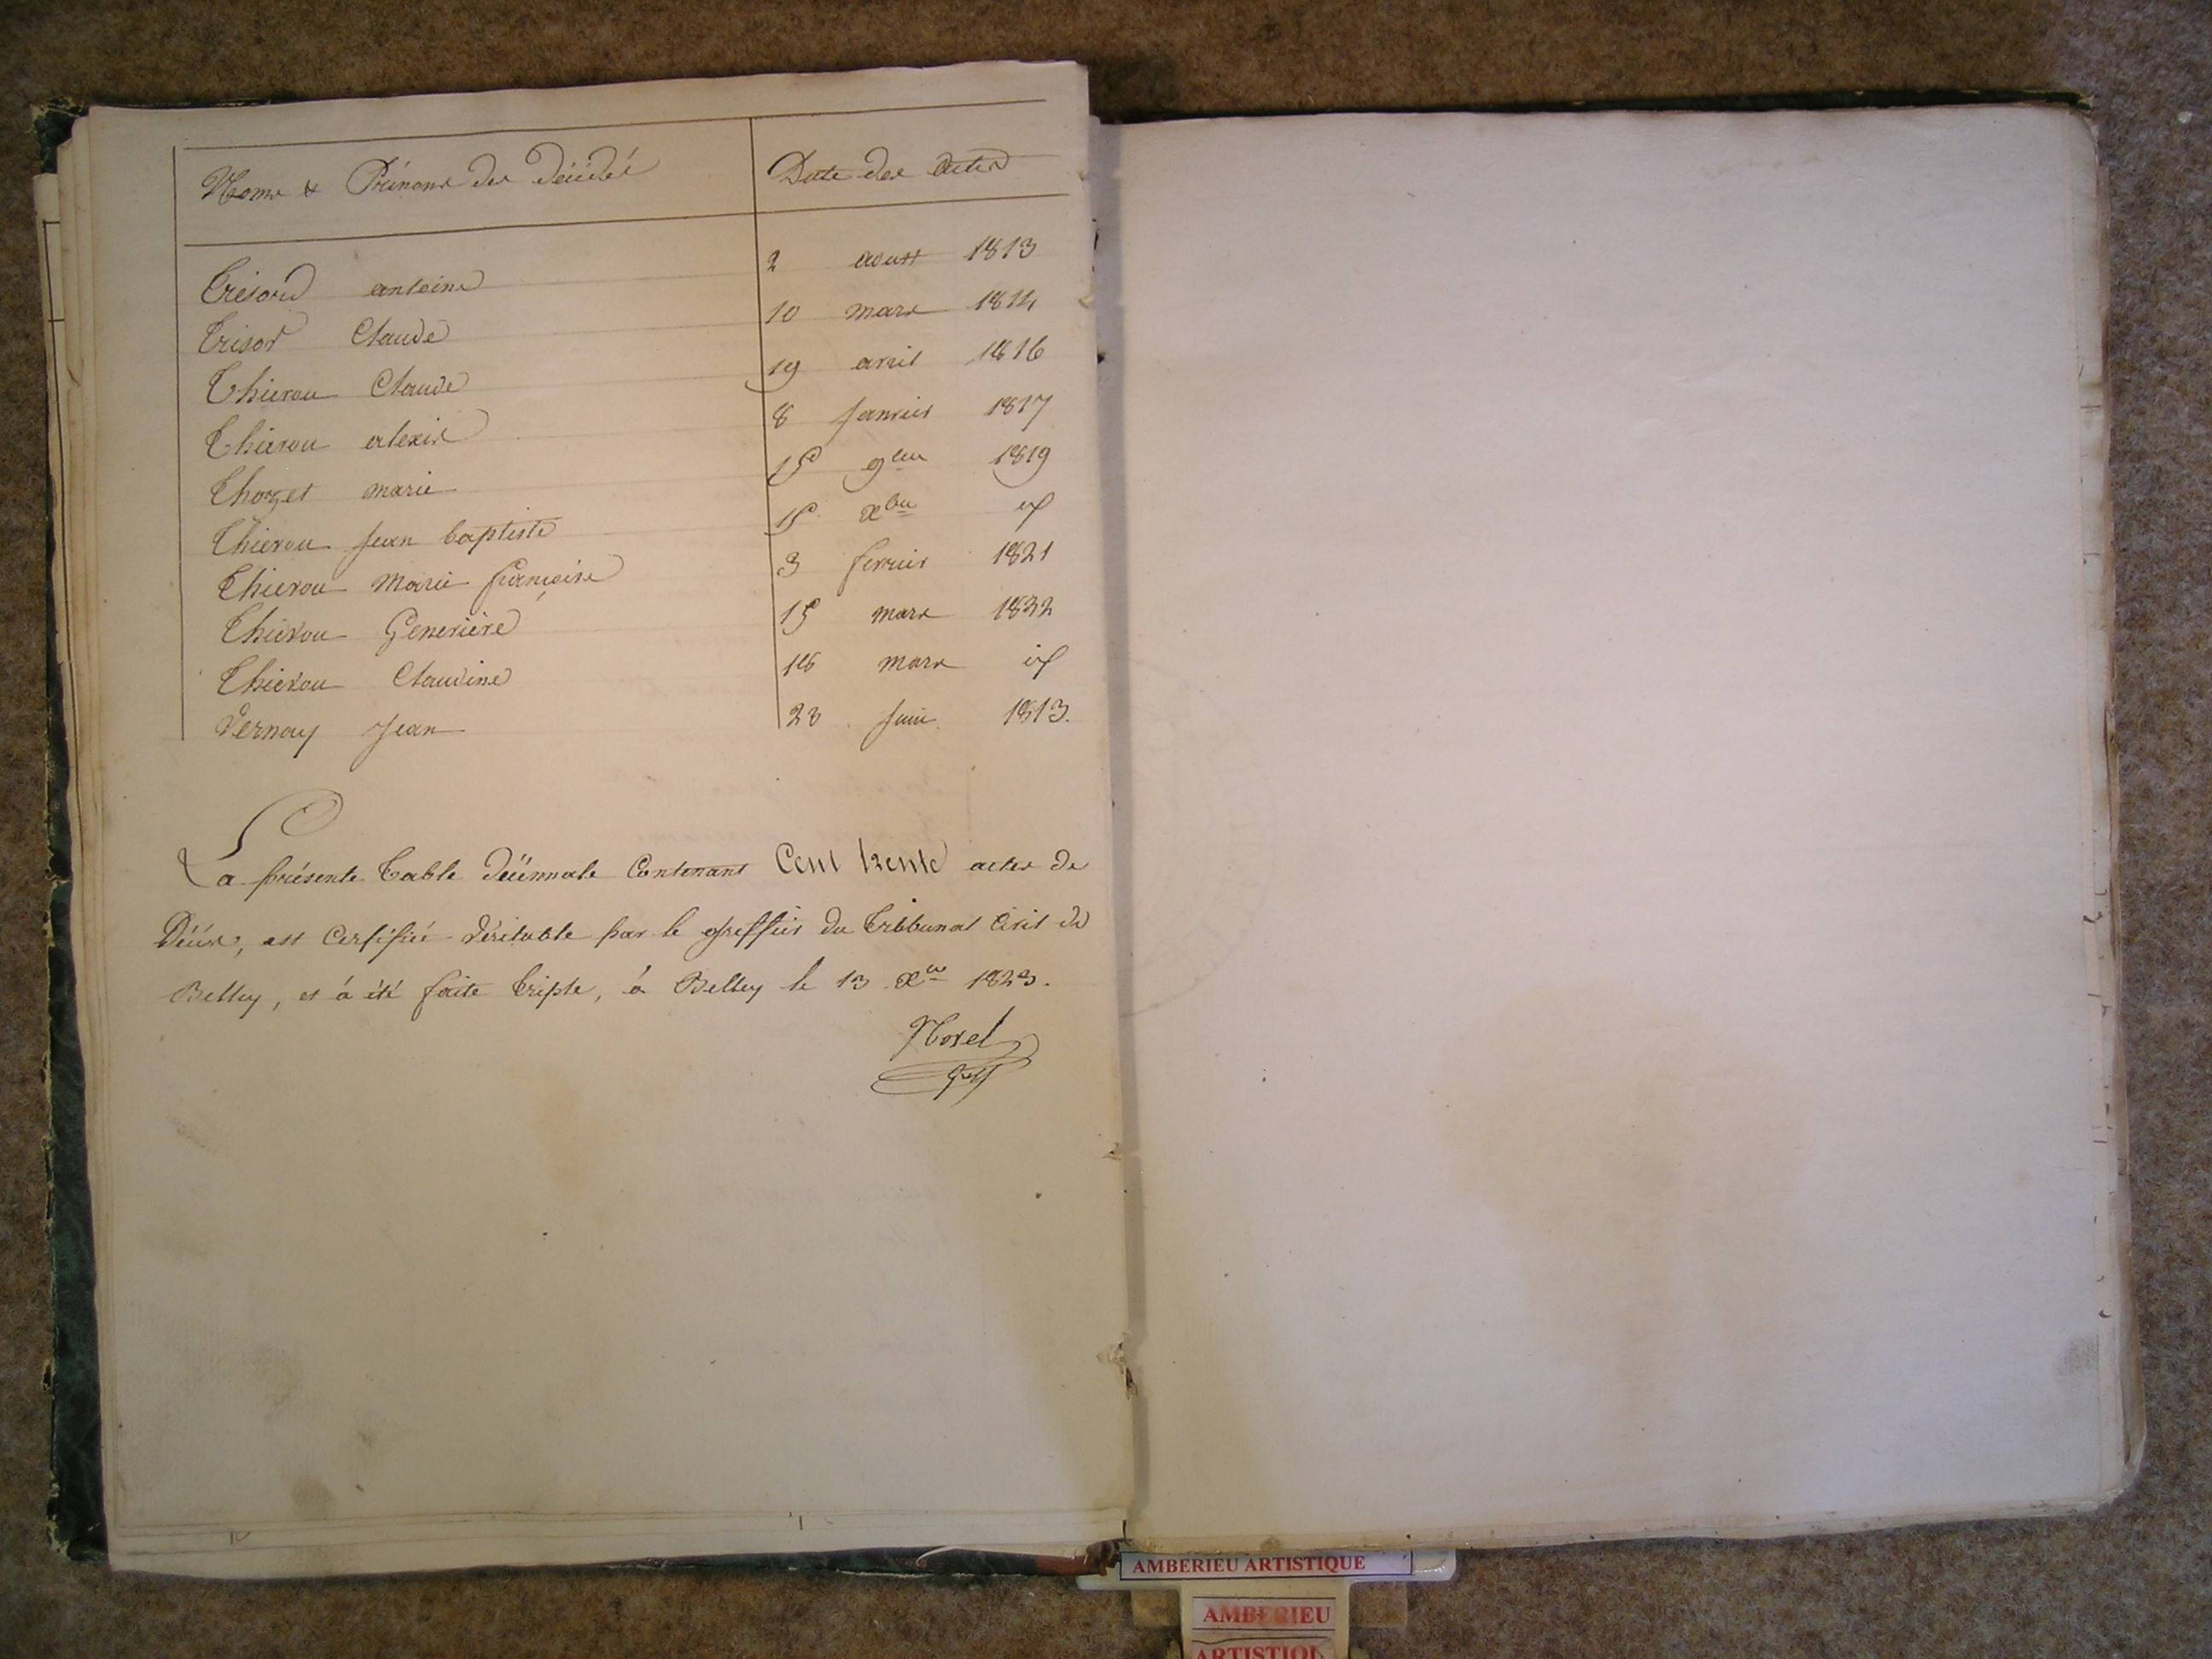 Noms & Prénoms des Décédés Date des Actes
Trésord antoine 2 aoust 1813
Trésor Claude 10 mars 1814
Thiévou Claude 19 avril 1816
Thiévou alexis 8 Janvier 1817
Thozet marie 15 9bre 1819
Thiévou Jean baptiste 15 Xbre id
Thiévou Marie françoise 3 fevrier 1821
Thiévou Geneviève 15 mars 1822
Thiévou Claudine 16 mars id
Vernay Jean 23 Juin 1813.
La présente Table Décennale Contenant Cent trente actes de
Décès, est Certifiée Véritable par le greffier du Tribbunal Civil de
Belley, et à été faite triple, à Belley le 13 Xbre 1823.
Morel
Greff
AMBERIEU ARTISTIQUE
AMBERIEU
ARTISTIQU